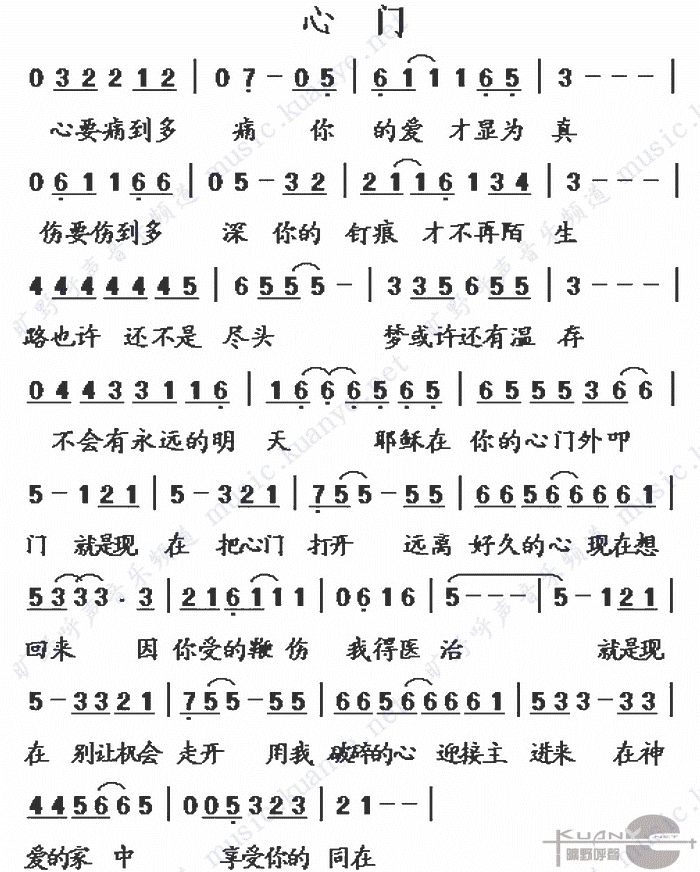 心 门
0 3 2 2 1 2 | 0 7 - 0 5 | 6 1 1 1 6 5 | 3 - - - |
心要痛到多 痛 你 的爱 才显为 真
0 6 1 1 6 6 | 0 5 - 3 2 | 2 1 1 6 1 3 4 | 3 - - - |
伤要伤到多 深 你的 钉痕 才不再陌 生
4 4 4 4 4 4 5 | 6 5 5 5 - | 3 3 5 6 5 5 | 3 - - - |
路也许 还不是 尽头 梦或许还有温 存
0 4 4 3 3 1 1 1 6 | 1 6 6 6 5 6 5 | 6 5 5 5 3 6 6 |
不会有永远的明 天 耶稣在 你的心门外叩
5 - 1 2 1 | 5 - 3 2 1 | 7 5 5 - 5 5 | 6 6 5 6 6 6 6 6 1 |
门 就是现 在 把心门 打开 远离 好久的心 现在想
5 3 3 3 . 3 | 2 1 6 1 1 1 | 0 6 1 6 | 5 - - - | 5 - 1 2 1 |
回来 因 你受的鞭 伤 我得医 治 就是现
5 - 3 3 2 1 | 7 5 5 - 5 5 | 6 6 5 6 6 6 6 6 1 | 5 3 3 - 3 3 |
在 别让机会 走开 用我 破碎的心 迎接主 进来 在神
4 4 5 6 6 5 | 0 0 5 3 2 3 | 2 1 - - |
爱的家 中 享受你的 同在
KUANYE.NET
旷野呼聲
旷野呼声音乐频道 music.kuanye.net